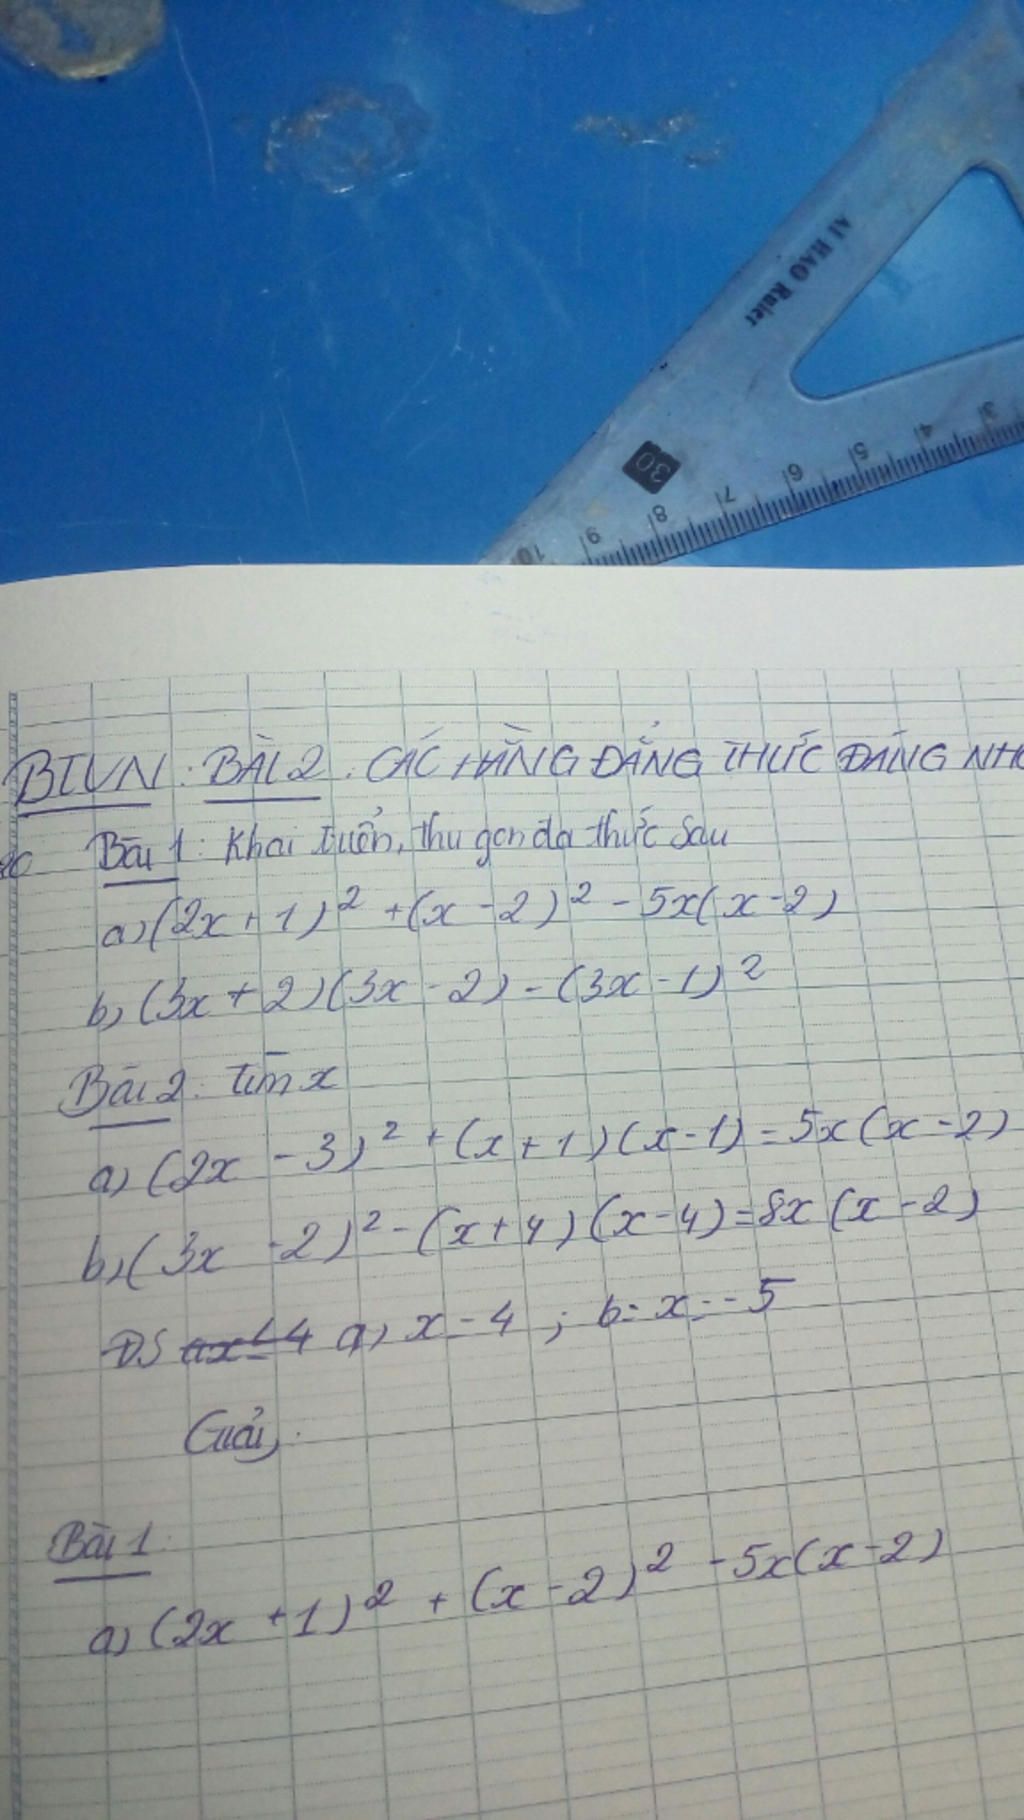 AI HAO Ruler
30
10 9 8 7 6 5 4 3
BTVN: BÀI 2: CÁC HẰNG ĐẲNG THỨC ĐÁNG NHỚ
Bài 1: Khai triển, thu gọn đa thức sau
a) (2x + 1)² + (x - 2)² - 5x(x - 2)
b) (3x + 2)(3x - 2) - (3x - 1)²
Bài 2: Tìm x
a) (2x - 3)² + (x + 1)(x - 1) = 5x(x - 2)
b) (3x - 2)² - (x + 4)(x - 4) = 8x(x - 2)
ĐS a) x = 4; b = x = -5
Giải
Bài 1:
a) (2x + 1)² + (x - 2)² - 5x(x - 2)